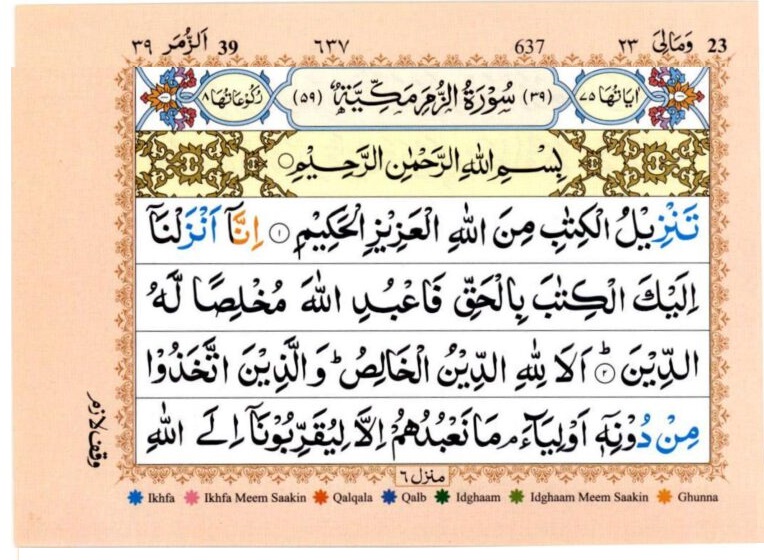 الزُّمَر ٣٩ 39 ٦٣٧ 637 وَمَالِیَ ٢٣ 23
اٰيَاتُهَا ٧٥ (٣٩) سُوْرَةُ الزُّمَرِ مَكِّيَّةٌ (٥٩) رُكُوْعَاتُهَا ٨
بِسْمِ اللّٰهِ الرَّحْمٰنِ الرَّحِيْمِ
تَنْزِيْلُ الْكِتٰبِ مِنَ اللّٰهِ الْعَزِيْزِ الْحَكِيْمِ ۝١ اِنَّاۤ اَنْزَلْنَاۤ
اِلَيْكَ الْكِتٰبَ بِالْحَقِّ فَاعْبُدِ اللّٰهَ مُخْلِصًا لَّهُ
الدِّيْنَ ۝٢ؕ اَلَا لِلّٰهِ الدِّيْنُ الْخَالِصُ ؕ وَالَّذِيْنَ اتَّخَذُوْا
مِنْ دُوْنِهٖۤ اَوْلِيَآءَ ۘ مَا نَعْبُدُهُمْ اِلَّا لِيُقَرِّبُوْنَاۤ اِلَى اللّٰهِ
وقف لازم
منزل ٦
Ikhfa Ikhfa Meem Saakin Qalqala Qalb Idghaam Idghaam Meem Saakin Ghunna